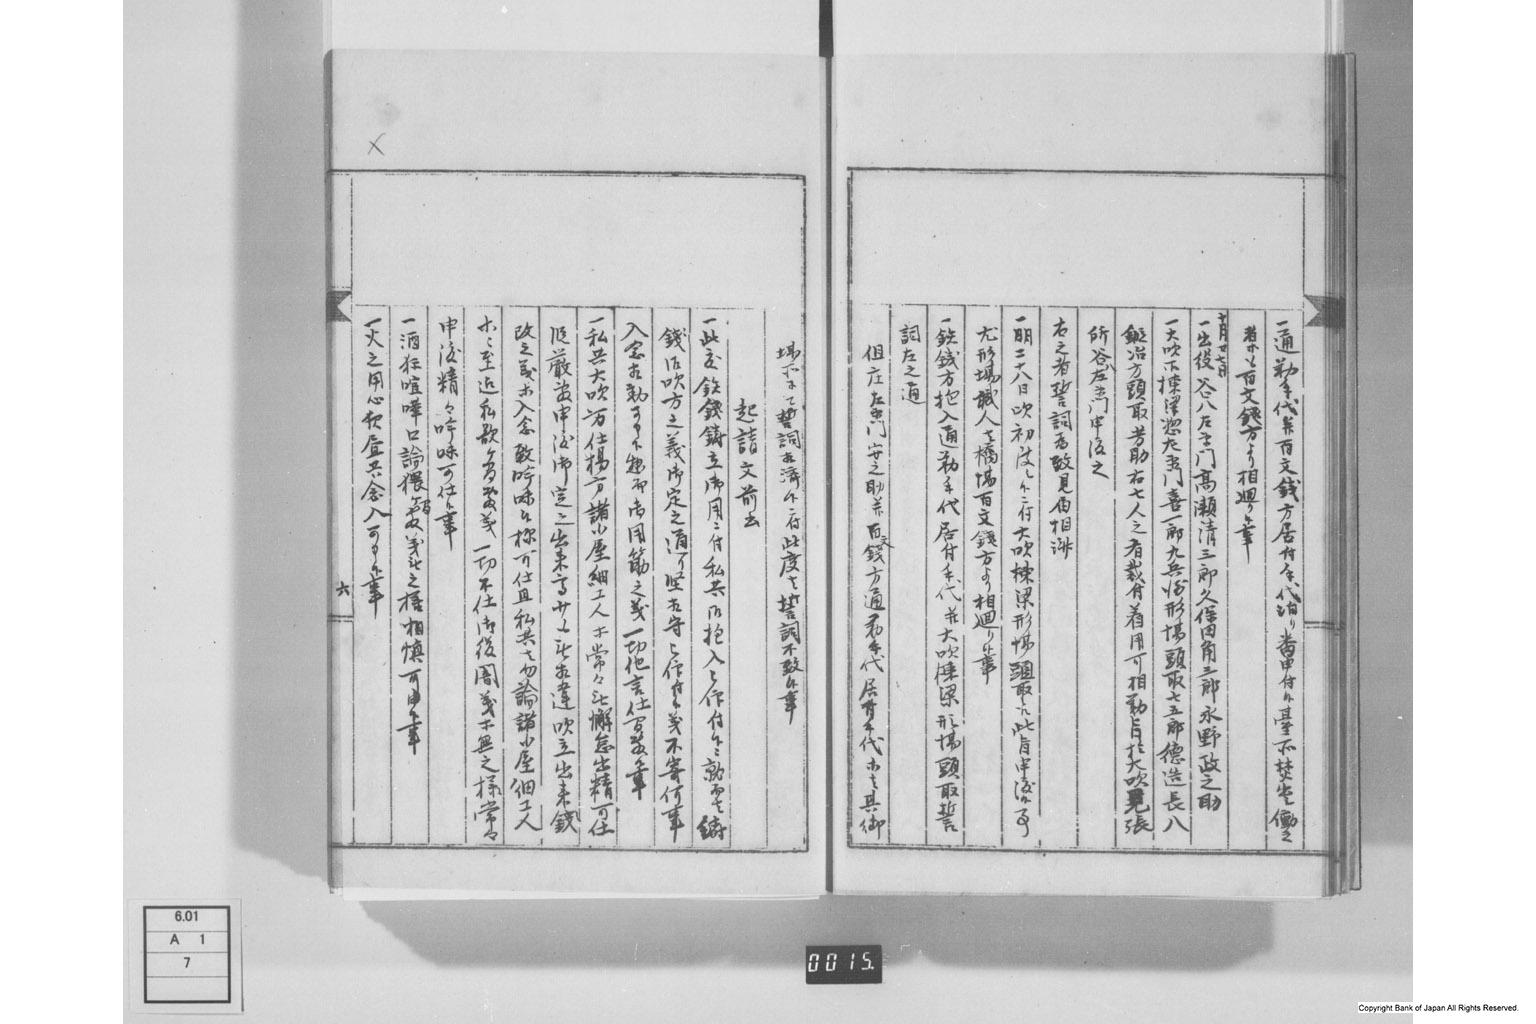 一通勤手代并百文銭方居付手代泊り番申付候基不焚出働之
者共も百文銭方より相廻り候事
十月廿七日
一出役谷八左衛門高瀬清三郎久保田角三郎永野政之助
一大吹所棟梁惣左衛門喜一郎九兵衛形場頭取七五郎徳造長八
鍛冶方頭取芳助右七人之者裁付着用可相勤旨於大吹見張
所谷八左衛門申渡之
右之者誓詞為致見届相済
一明二十八日吹初被仰付大吹棟梁形場頭取江此旨申渡候事
尤形場職人も橋場百文銭方より相廻り候事
一鉄銭方抱入通勤手代居付手代并大吹棟梁形場頭取誓
詞左之通
但庄左衛門安之助并百文銭方通勤手代居付手代等も其御
場所にて誓詞相済候に付此度も誓詞不致候事
起請文前書
一此度鉄銭鋳立御用に付私共御抱入被仰付候に就而も鋳
銭御吹方之義御定之通り堅相守被仰付候義不寄何事
入念相勤可申候惣而御用筋之義一切他言仕間敷候事
一私共大吹方仕揚方諸小屋細工人等常々無懈怠出精可仕
旨厳密申渡御定之出来高より無相違吹立出来銭
改之義等入念致吟味候様可仕且私共も勿論諸小屋細工人
等に至迄私欲ヶ間敷義一切不仕御後闇義等無之様常々
申渡精々吟味可仕候事
一酒狂喧嘩口論猥ヶ間敷義無之様相慎可申候事
一火之用心夜昼共念入可申候事
六
6.01
A 1
7
0015.
Copyright Bank of Japan All Rights Reserved.